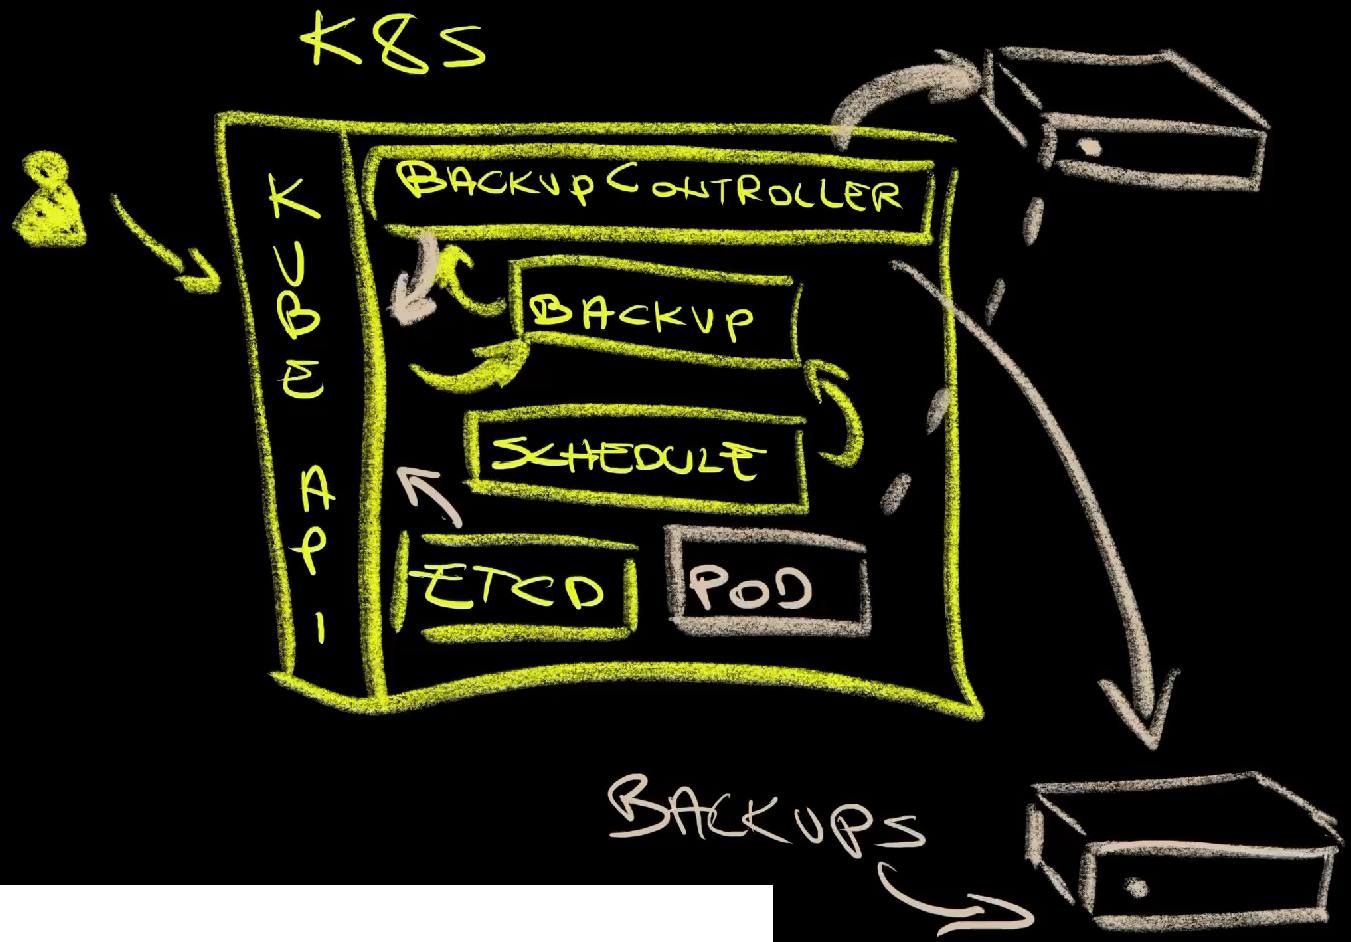 K8S
KUBE API
BACKUP CONTROLLER
BACKUP
SCHEDULE
ETCD
POD
BACKUPS